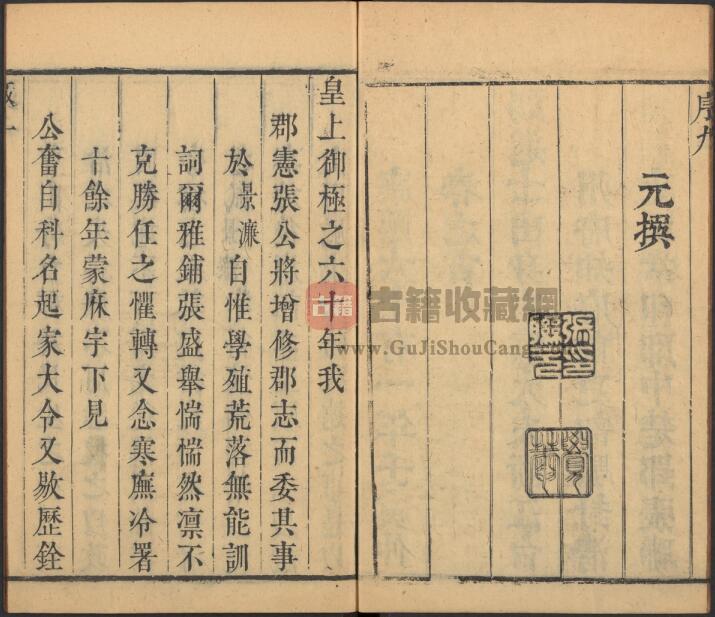 序九
元撰
張印聯元
覺菴
皇上御極之六十年我
郡憲張公將增修郡志而委其事
於景濂自惟學殖荒落無能訓
詞爾雅鋪張盛舉惴惴然凜不
克勝任之懼轉又念寒廡冷署
十餘年蒙庥宇下見
公奮自科名起家大令又敭歷銓
跋一
古籍
古籍收藏網
www.GuJiShouCang.com